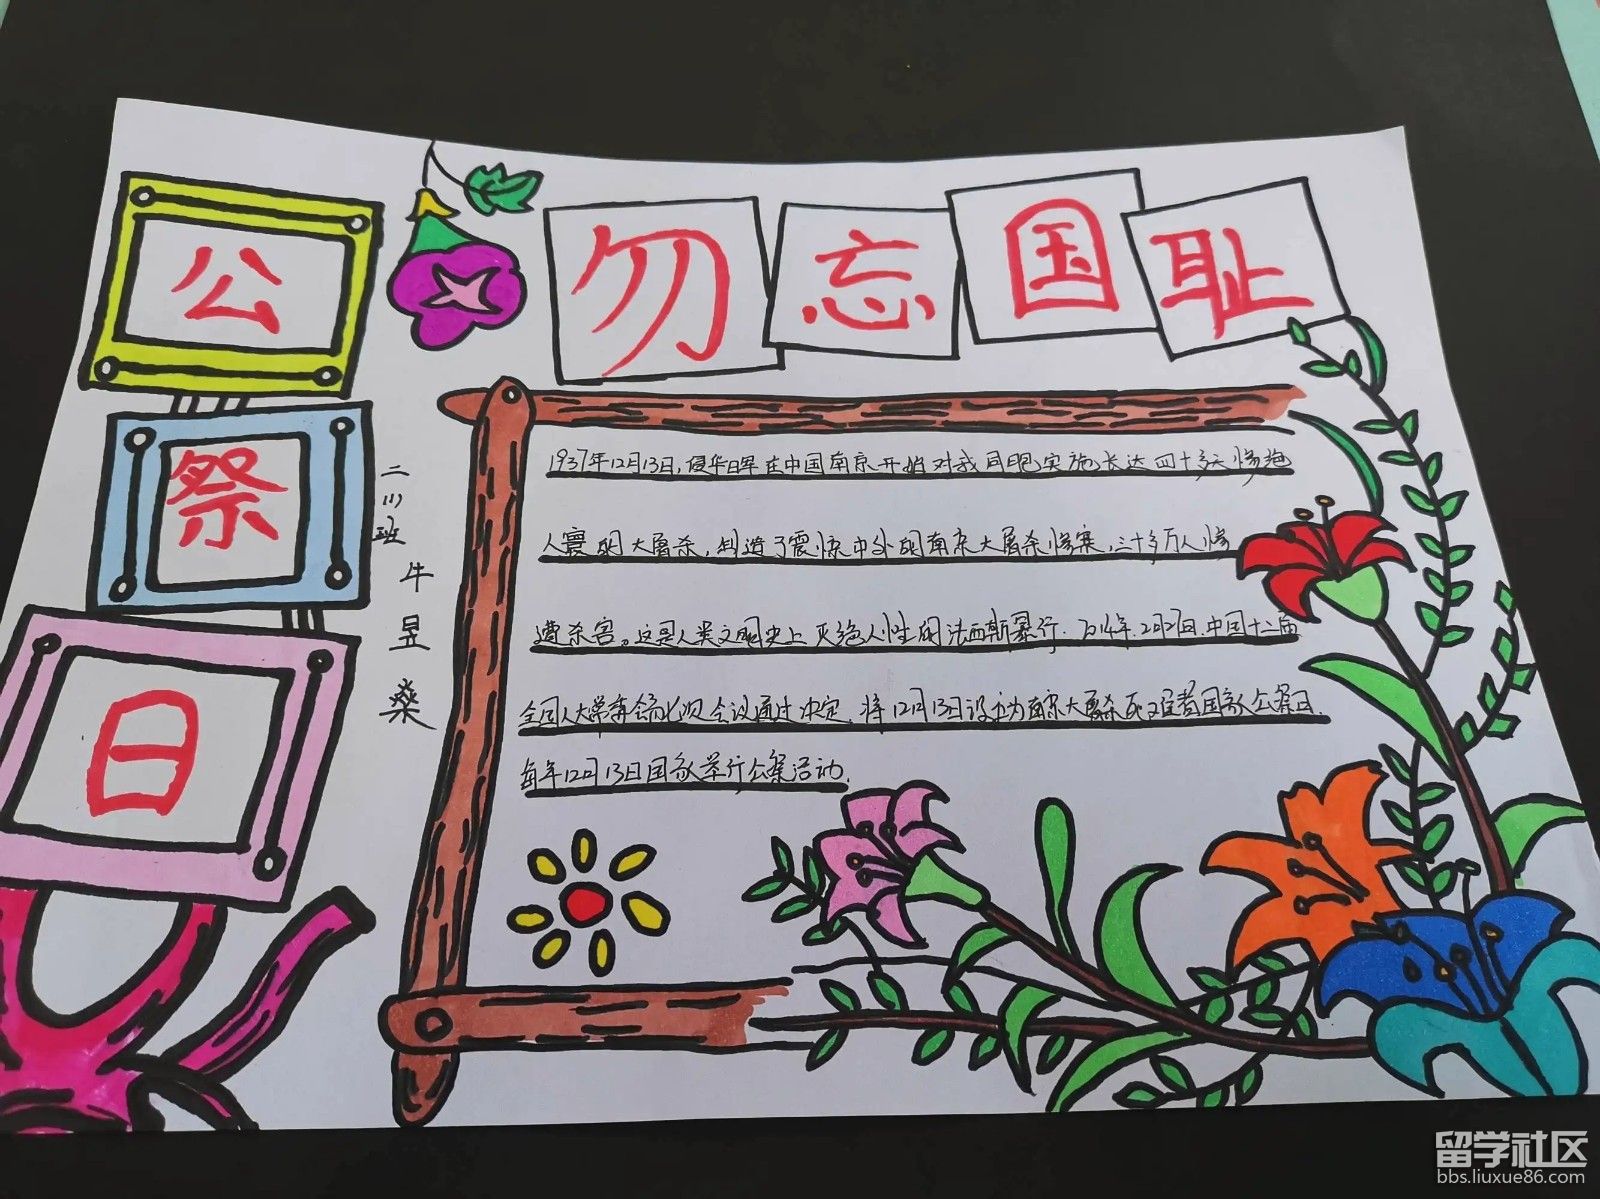 勿忘国耻
公
祭
日
二(1)班
牛昱燊
1937年12月13日,侵华日军在中国南京开始对我同胞实施长达四十多天惨绝
人寰的大屠杀,制造了震惊中外的南京大屠杀惨案,三十多万人惨
遭杀害。这是人类文明史上灭绝人性的法西斯暴行.2014年.2月27日.中国十二届
全国人大常委会第七次会议通过决定.将12月13日设立为南京大屠杀死难者国家公祭日.
每年12月13日国家举行公祭活动.
留学社区
bbs.liuxue86.com